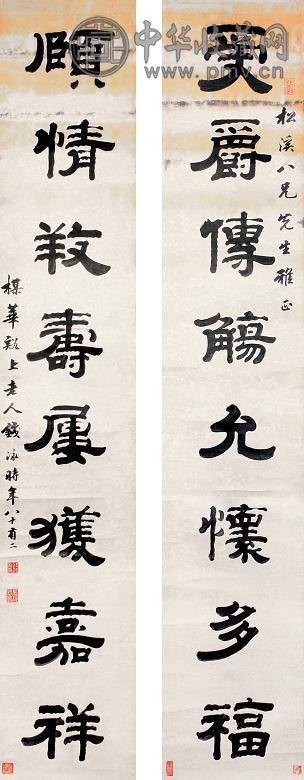 中华收藏网
www.pmv.cn
松溪八兄先生雅正
爵傳觴允懷多福
頤情養壽屢獲嘉祥
楳華谿上老人錢泳時年八十有二